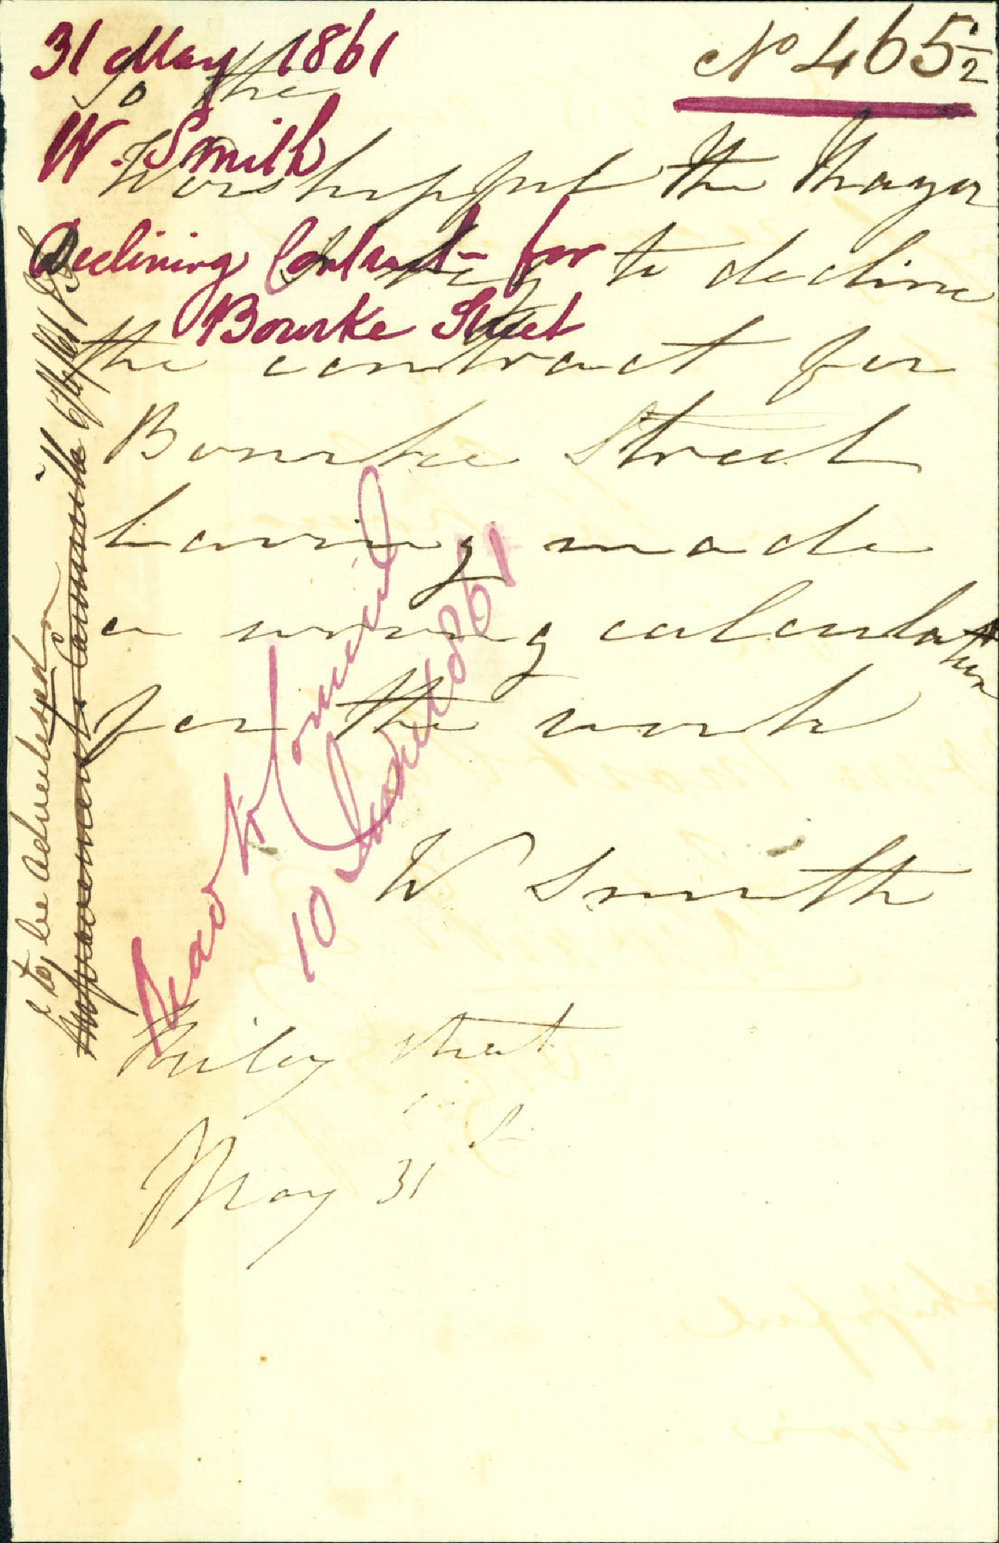 31 May 1861
No 465 1/2
W. Smith
Declining Contract for
Bourke Street
To the
Worshipful the Mayor
I beg to decline
the contract for
Bourke Street
having made
a wrong calculation
for the work
W Smith
Riley Street
May 31st
Read to Council
10 June 1861
"to be advertised"
Improvement Committee 6/6/61